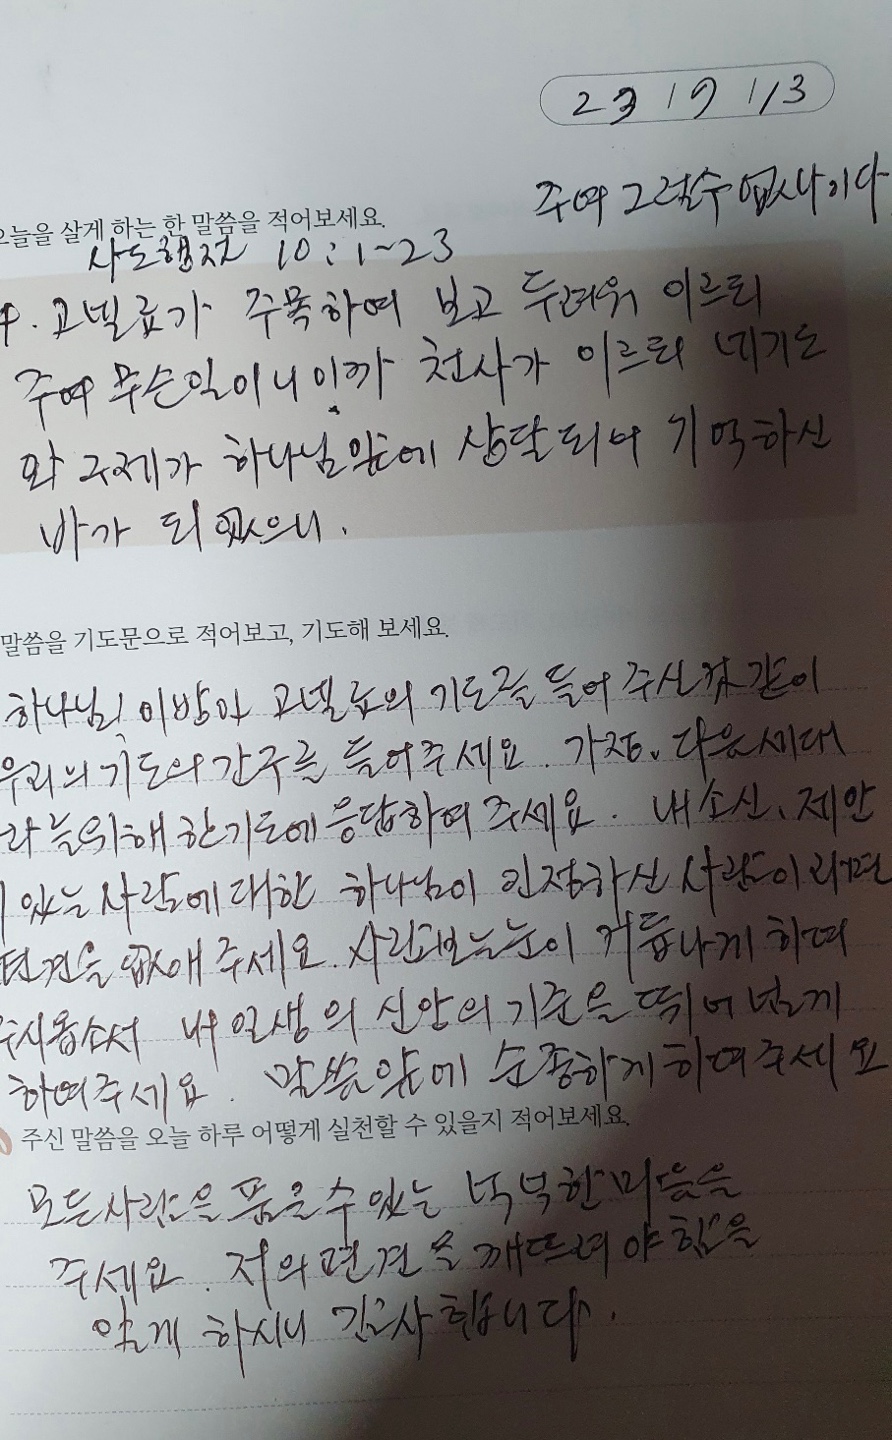 주여 그럴수 없나이다
오늘을 살게 하는 한 말씀을 적어보세요.
사도행전 10:1~23
4. 고넬료가 주목하여 보고 두려워 이르되
주여 무슨일이니이까 천사가 이르되 네기도
와 구제가 하나님앞에 상달되어 기억하신
바가 되었으니.
말씀을 기도문으로 적어보고, 기도해 보세요.
하나님! 이방인 고넬료의 기도를 들어 주신것 같이
우리의 기도의 간구를 들어주세요. 가정, 다음세대
를위해 한기도에 응답하여 주세요. 내 소신, 제안
있는 사람에 대한 하나님이 인정하신 사람이라면
편견을 없애 주세요. 사람보는눈이 거듭나게 하여
주시옵소서 내 일생의 신앙의 기준을 뛰어 넘게
하여주세요. 말씀앞에 순종하게하여주세요
주신 말씀을 오늘 하루 어떻게 실천할 수 있을지 적어보세요.
모든사람을 품을수있는 넉넉한마음을
주세요. 저의편견을 깨뜨려야함을
알게 하시니 감사합니다.